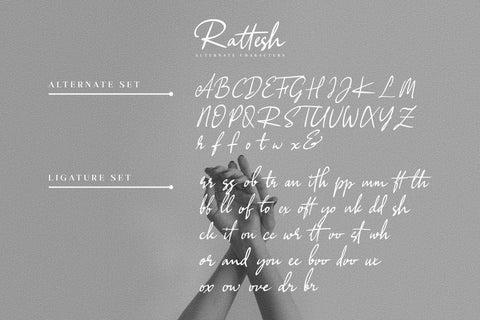 Rattesh
ALTERNATE CHARACTERS
ALTERNATE SET
A B C D E F G H I J K L M
N O P Q R S T U V W X Y Z
r f f o t w x &
LIGATURE SET
rr ss ob tr an ith pp mm ff th
bb ll of to ex off yo nk dd sh
ck it on cc wr tt oo st wh
or and you ee boo doo ux
ox ow ove dr br